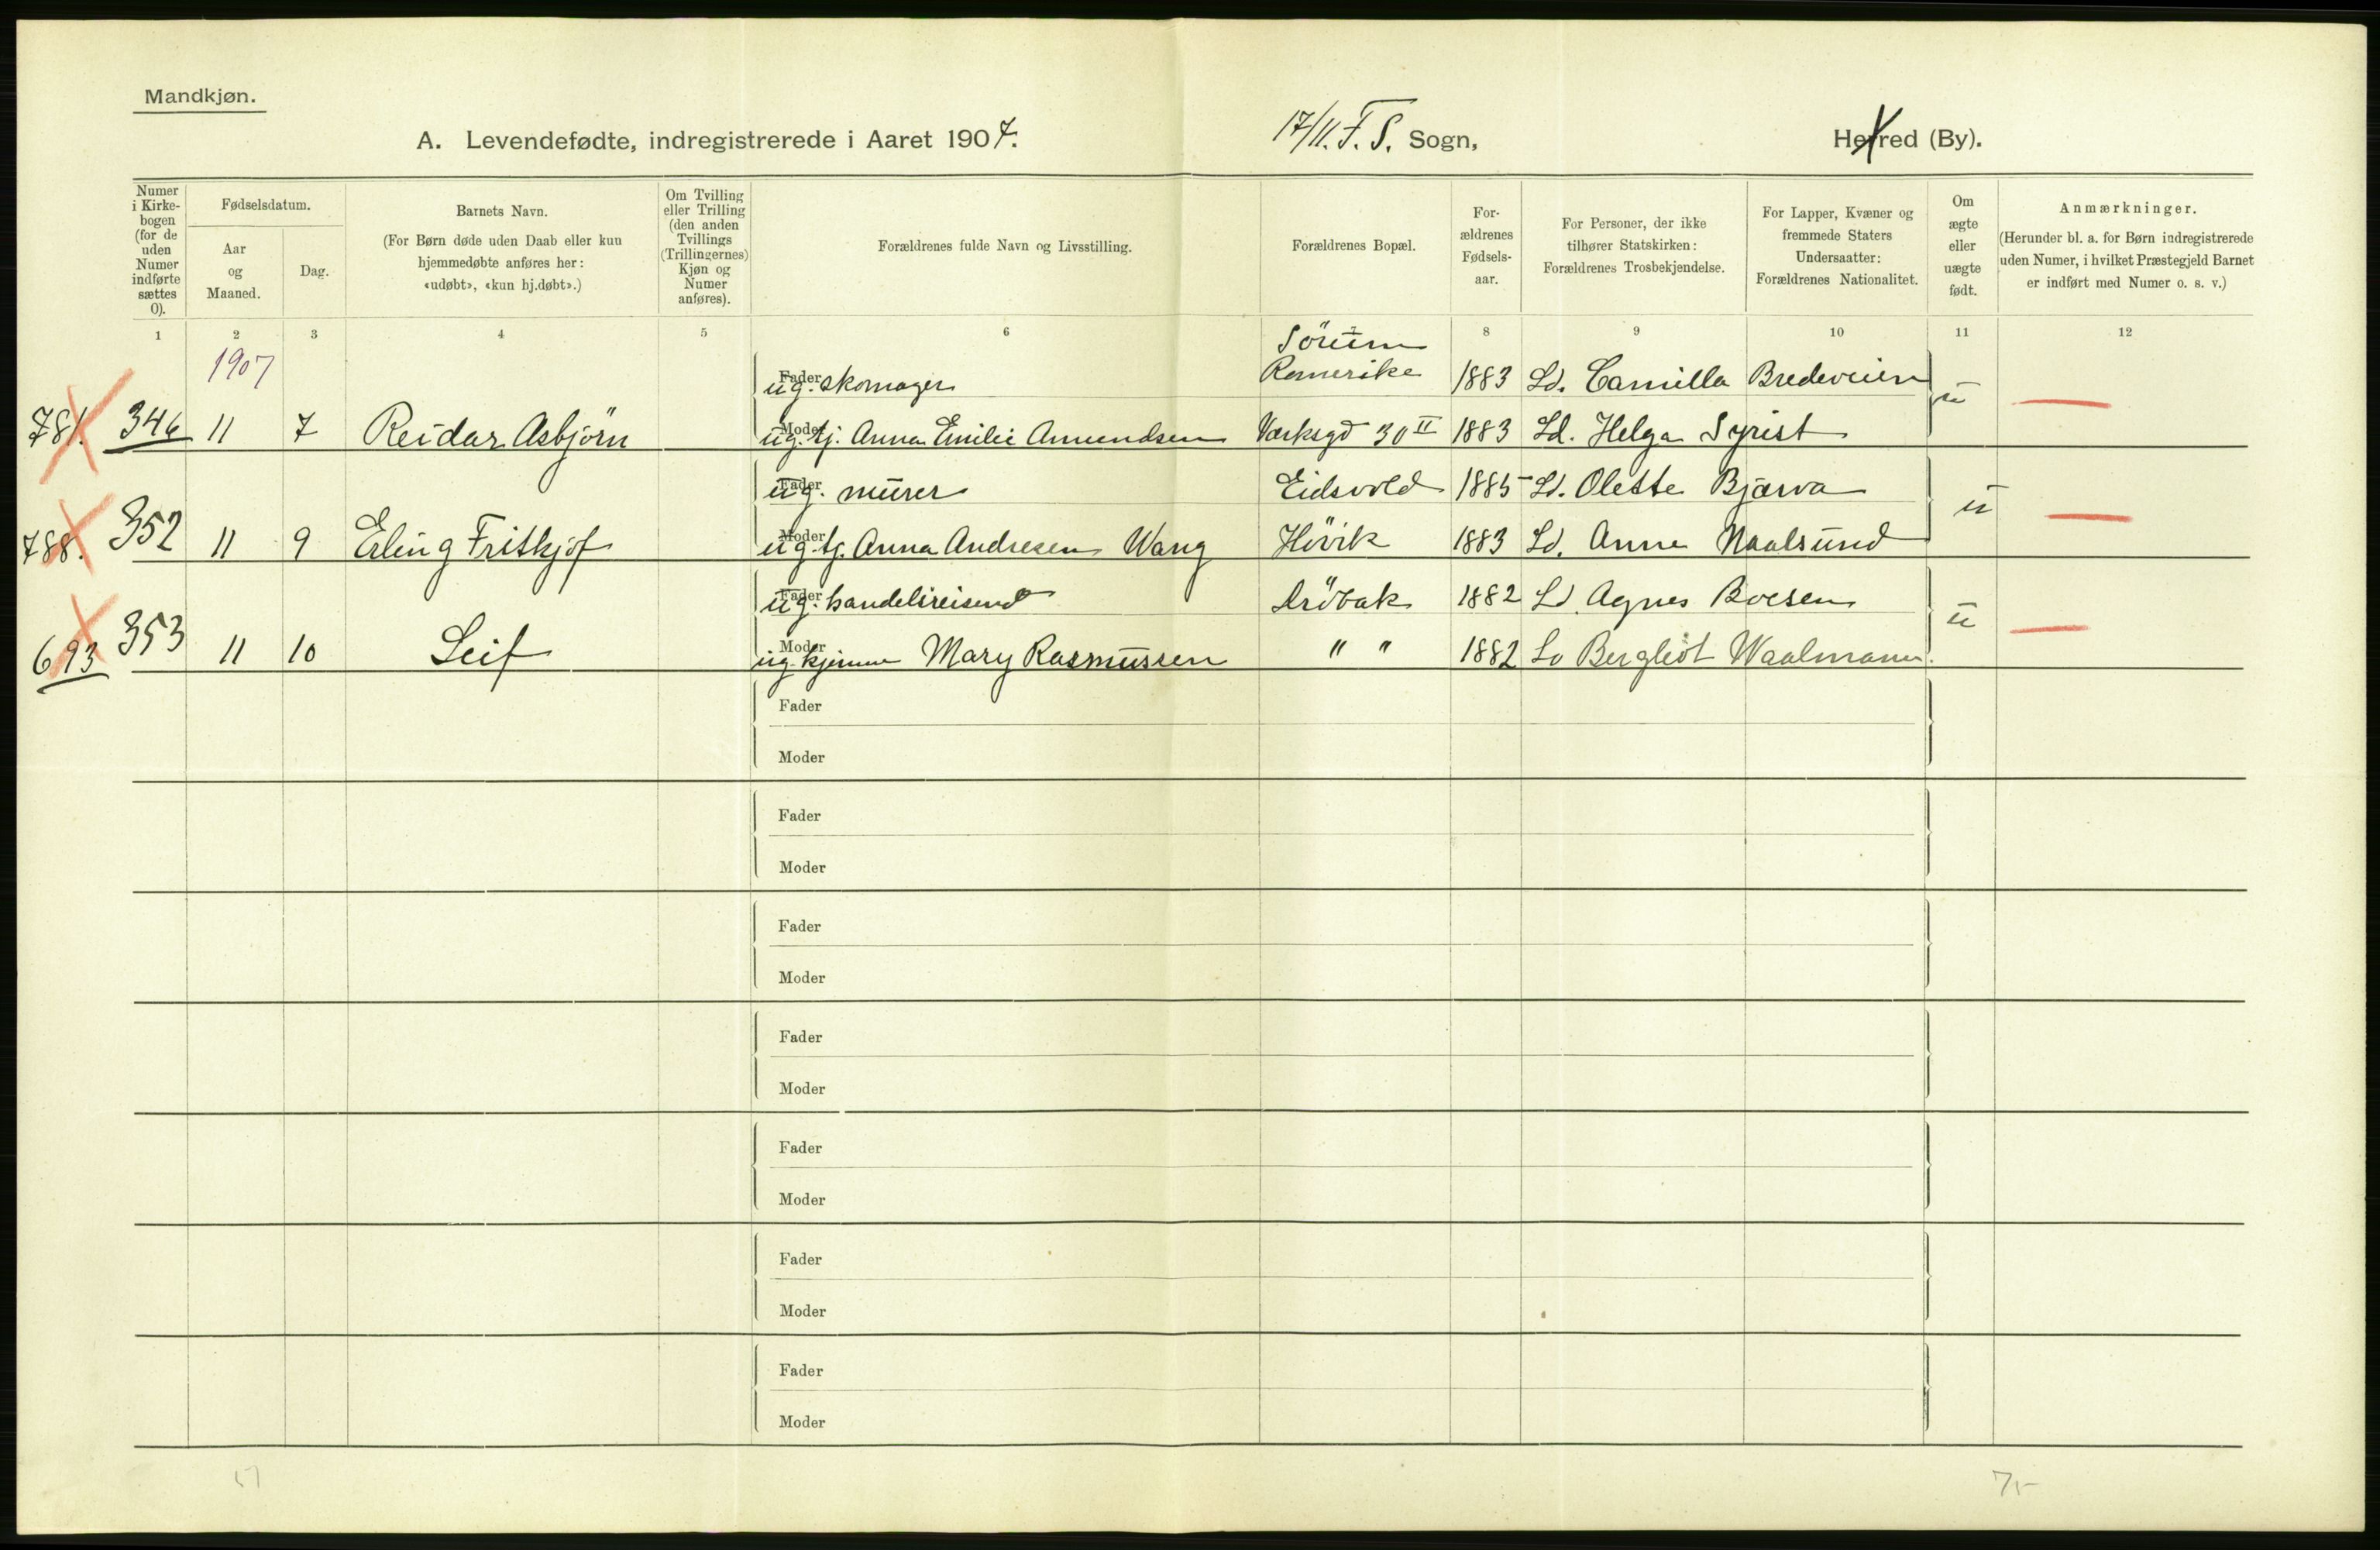 Mandkjøn.
A. Levendefødte, indregistrerede i Aaret 1907.
17/11. F. S. Sogn,
Herred (By).
Numer i Kirke-bogen (for de uden Numer indførte sættes 0).
Fødselsdatum.
Aar og Maaned.
Dag.
Barnets Navn.
(For Børn døde uden Daab eller kun hjemmedøbte anføres her: «udøbt», «kun hj.døbt».)
Om Tvilling eller Trilling (den anden Tvillings (Trillingernes) Kjøn og Numer anføres).
Forældrenes fulde Navn og Livsstilling.
Forældrenes Bopæl.
For-ældrenes Fødsels-aar.
For Personer, der ikke tilhører Statskirken: Forældrenes Trosbekjendelse.
For Lapper, Kvæner og fremmede Staters Undersaatter: Forældrenes Nationalitet.
Om ægte eller uægte født.
Anmærkninger.
(Herunder bl. a. for Børn indregistrerede uden Numer, i hvilket Præstegjeld Barnet er indført med Numer o. s. v.)
1 2 3 4 5 6 7 8 9 10 11 12
1907
Sörum
Fader ug. skomager Romerike 1883 Ld. Camilla Bredeveien
781. 346 11 7 Reidar Asbjörn Moder ug. tj. Anna Emilie Amundsen Værksgd 30 II 1883 Ld. Helga Syrist u
Fader ug. murer Eidsvold 1885 Ld. Olette Bjærva
788. 352 11 9 Erling Fritkjof Moder ug. tj. Anna Andresen Wang Hövik 1883 Ld. Anne Naalsund u
Fader ug. handelsreisend Dröbak 1882 Ld. Agnes Boesen
693 353 11 10 Leif Moder ug. kjenne Mary Rasmussen " " 1882 Ld Bergliot Waalmann. u
Fader
Moder
Fader
Moder
Fader
Moder
Fader
Moder
Fader
Moder
Fader
Moder
Fader
Moder